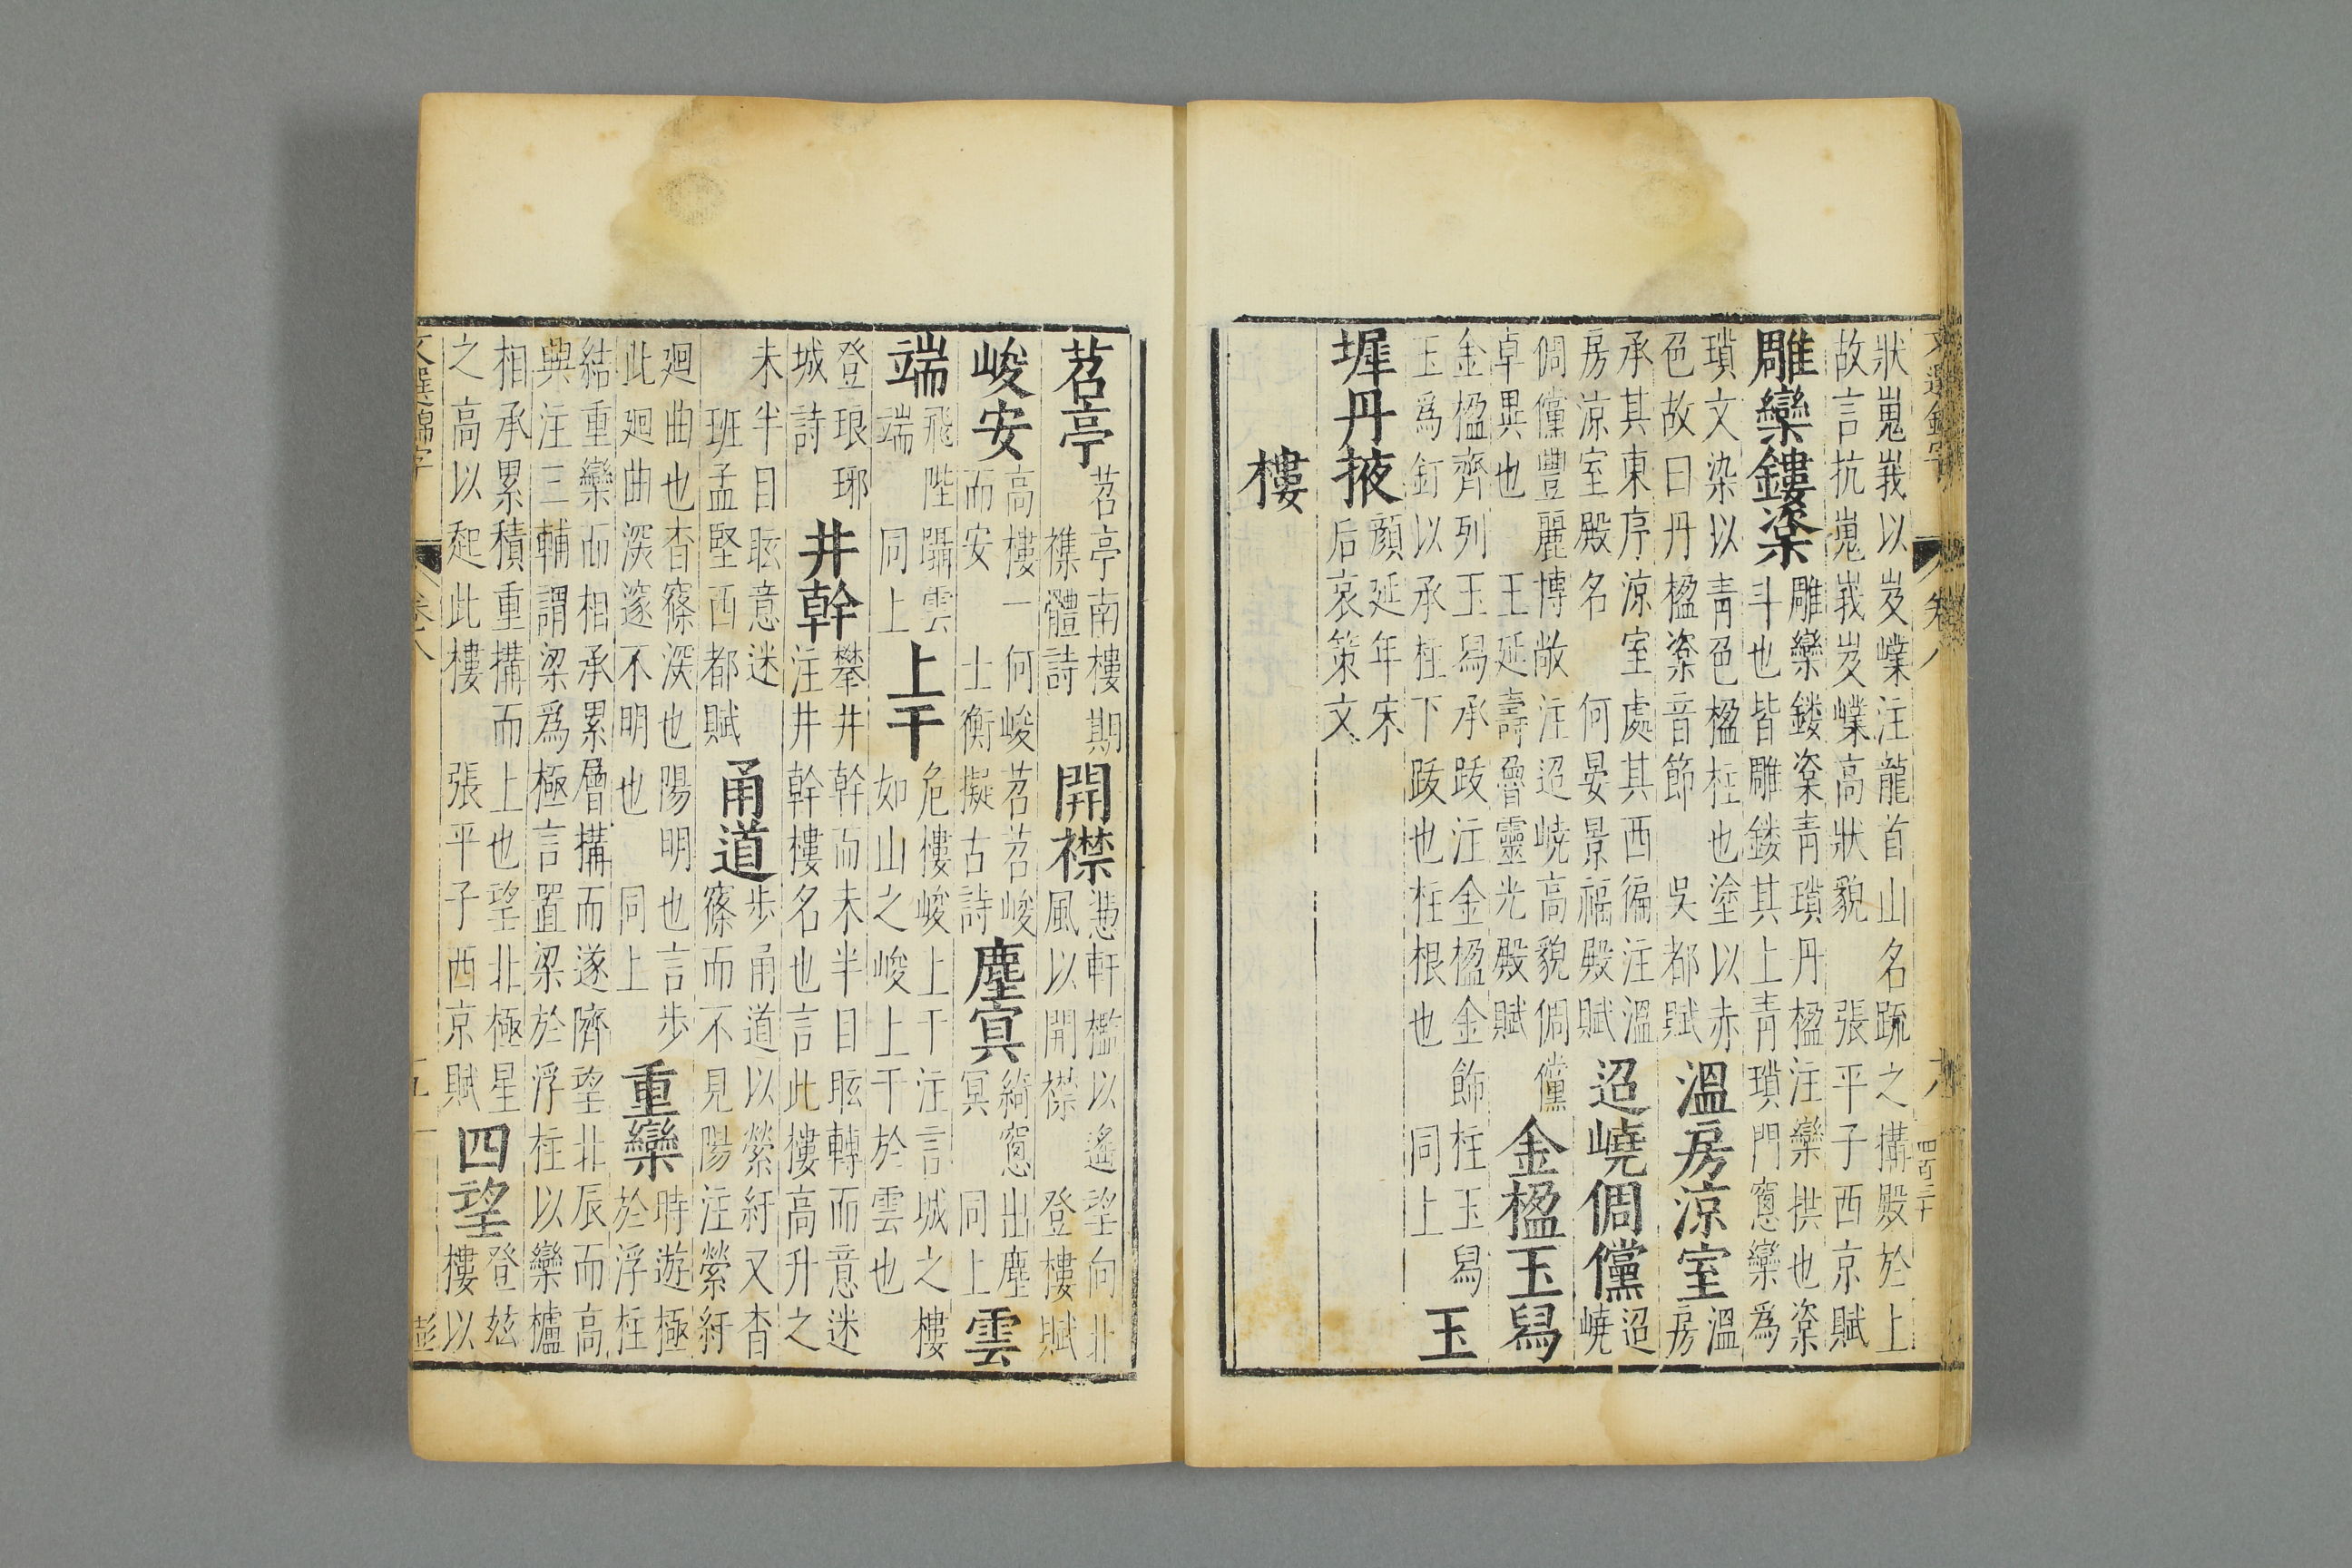 狀嵬峩以岌嶫注龍首山名䟽之搆殿於上
故言抗嵬峩岌嶫高狀貌　張平子西京賦
雕欒鏤楶
雕欒鏤楶青瑣丹楹注欒拱也楶
斗也皆雕鏤其上青瑣門窻欒爲
瑣文染以青色楹柱也塗以赤
色故曰丹楹楶音節　吳都賦
溫房涼室
溫
房
承其東序涼室處其西偏注溫
房涼室殿名　何晏景福殿賦
迢嶢倜儻
迢
嶢
倜儻豐麗博敞注迢嶢高貌倜儻
卓異也　王延壽魯靈光殿賦
金楹玉舄
金楹齊列玉舄承跋注金楹金飾柱玉舄
玉爲釘以承柱下跋也柱根也　同上
玉
墀丹掖
顔延年宋
后哀策文
樓
苕亭
苕亭南樓期
襍體詩
開襟
憑軒檻以遙望向北
風以開襟　登樓賦
峻安
高樓一何峻苕苕峻
而安　士衡擬古詩
塵冥
綺窻出塵
冥　同上
雲
端
飛陛躡雲
端　同上
上干
危樓峻上干注言城之樓
如山之峻上干於雲也
登琅琊
城詩
井幹
攀井幹而未半目眩轉而意迷
注井幹樓名也言此樓高升之
未半目眩意迷
班孟堅西都賦
甬道
步甬道以縈紆又杳
篠而不見陽注縈紆
廻曲也杳篠深也陽明也言步
此廻曲深邃不明也　同上
重欒
時遊極
於浮柱
結重欒而相承累層搆而遂隮望北辰而高
興注三輔謂梁爲極言置梁於浮柱以欒櫨
相承累積重搆而上也望北極星
之高以起此樓　張平子西京賦
四望
登玆
樓以
文選錦字
卷八
彭